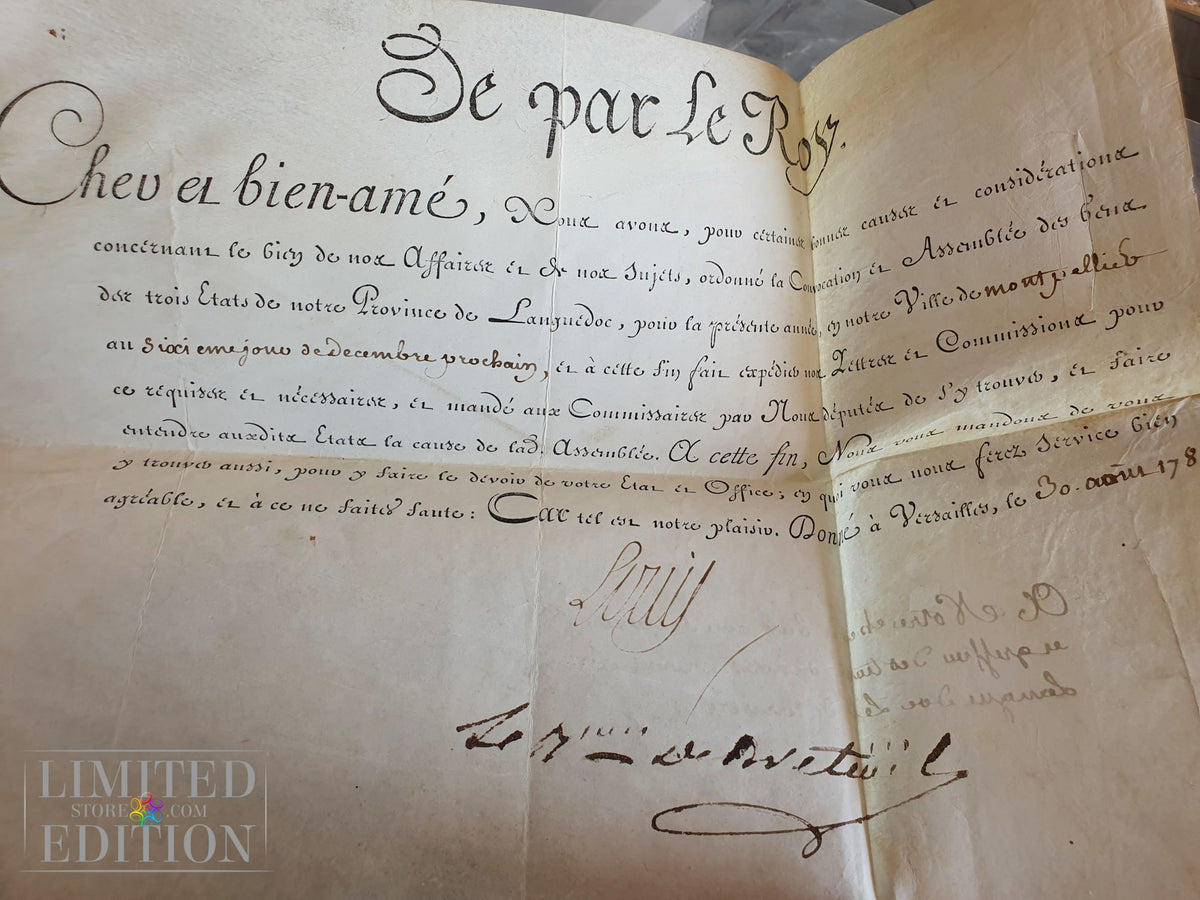 De par Le Roy.
Cher et bien-amé, Nous avons, pour certaines bonnes causes et considérations
concernant le bien de nos Affaires et de nos sujets, ordonné la Convocation et Assemblée des Gens
des trois Etats de notre Province de Languedoc, pour la présente année, en notre Ville de montpellier
au sixieme jour de decembre prochain, et à cette fin fait expédier nos Lettres et Commissions pour
ce requises et nécessaires, et mandé aux Commissaires par Nous députés de s'y trouver, et faire
entendre auxdits Etats la cause de lad. Assemblée. A cette fin, Nous vous mandons de vous
y trouver aussi, pour y faire le devoir de votre Etat et Office; en quoi vous nous ferez service bien
agréable, et à ce ne faites faute: Car tel est notre plaisir. Donné à Versailles, le 30. août 178
Louis
Le Bon de Breteuil
LIMITED
STORE .COM
EDITION